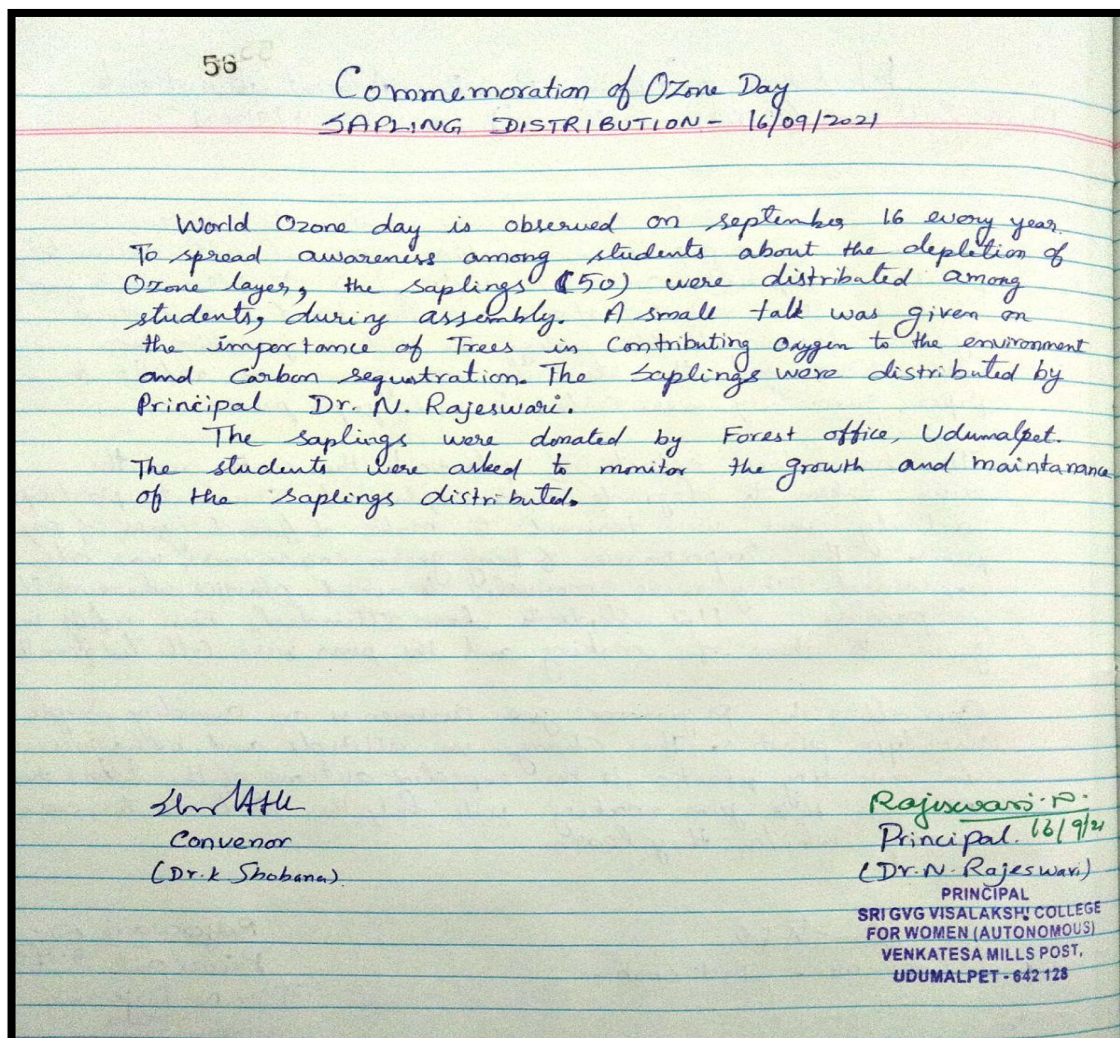 56
Commemoration of Ozone Day
SAPLING DISTRIBUTION - 16/09/2021
World Ozone day is observed on september 16 every year.
To spread awareness among students about the depletion of
Ozone layer, the saplings (50) were distributed among
students, during assembly. A small talk was given on
the importance of Trees in Contributing Oxygen to the environment
and Carbon sequstration. The Saplings were distributed by
Principal Dr. N. Rajeswari.
The saplings were donated by Forest office, Udumalpet.
The students were asked to monitor the growth and maintanance
of the saplings distributed.
Convenor
(Dr. K Shobana)
Rajeswari. N.
16/9/21
Principal.
(Dr. N. Rajeswari)
PRINCIPAL
SRI GVG VISALAKSHI COLLEGE
FOR WOMEN (AUTONOMOUS)
VENKATESA MILLS POST,
UDUMALPET - 642 128